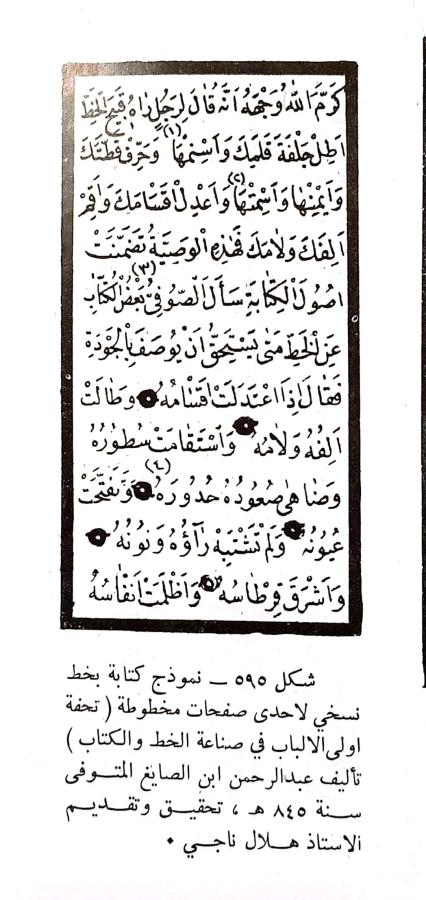 كَرَّمَ اللهُ وَجْهَهُ اَنَّهُ قَالَ لِرَجُلٍ رَاٰهُ قَبِيحَ الْخَطِّ
اَطِلْ جَلْفَةَ قَلَمِكَ وَاَسْمِنْهَا (١) وَحَرِّفْ قَطَّتَكَ
وَاَيْمِنْهَا وَاَسْمِنْهَا (٢) وَاَعْدِلْ اَقْسَامَكَ وَاَقِمْ
اَلِفَكَ وَلَامَكَ فَهٰذِهِ الْوَصِيَّةُ تَضَمَّنَتْ
اُصُولَ الْكِتَابَةِ (٣) سَأَلَ الصُّوفِيُّ بَعْضَ الْكُتَّابِ
عَنِ الْخَطِّ مَتٰى يَسْتَحِقُّ اَنْ يُوصَفَ بِالْجَوْدَةِ
فَقَالَ اِذَا اعْتَدَلَتْ اَقْسَامُهُ وَطَالَتْ
اَلِفُهُ وَلَامُهُ وَاسْتَقَامَتْ سُطُورُهُ
وَضَاهٰى صُعُودُهُ حُدُورَهُ (٤) وَتَفَتَّحَتْ
عُيُونُهُ وَلَمْ تَشْتَبِهْ رَآؤُهُ وَنُونُهُ
وَاَشْرَقَ قِرْطَاسُهُ وَاَظْلَمَتْ اَنْفَاسُهُ
شكل ٥٩٥ ــ نموذج كتابة بخط
نسخي لاحدى صفحات مخطوطة ( تحفة
اولى الالباب في صناعة الخط والكتاب )
تأليف عبدالرحمن ابن الصايغ المتوفى
سنة ٨٤٥ هـ ، تحقيق وتقديم
الاستاذ هلال ناجي ٠